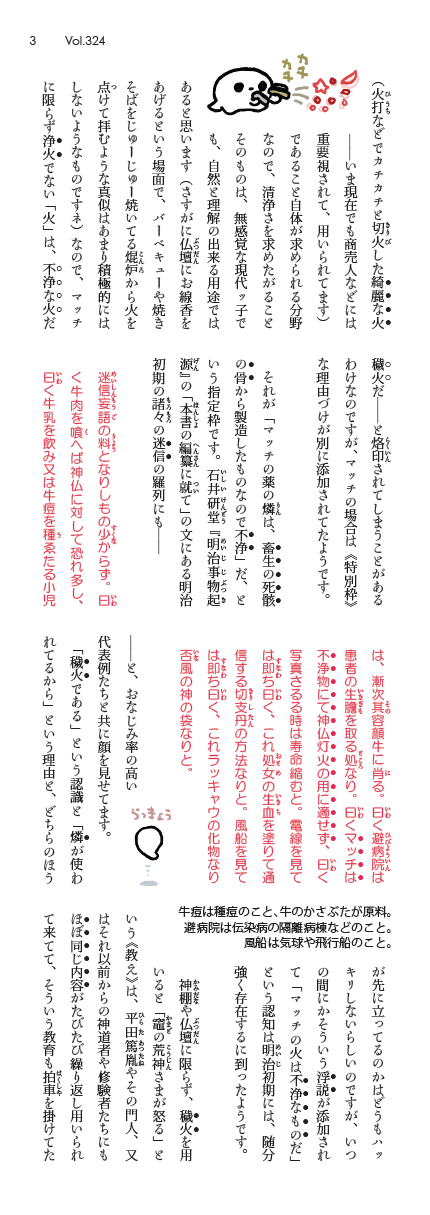 3 Vol.324
カチ
カチ
（火打などでカチカチと切火した綺麗な火
――いま現在でも商売人などには
重要視されて、用いられてます）
であること自体が求められる分野
なので、清浄さを求めたがること
そのものは、無感覚な現代ッ子で
も、自然と理解の出来る用途では
あると思います（さすがに仏壇にお線香を
あげるという場面で、バーベキューや焼き
そばをじゅーじゅー焼いてる焜炉から火を
点けて拝むような真似はあまり積極的には
しないようなものですネ）なので、マッチ
に限らず浄火でない「火」は、不浄な火だ
穢火だ――と烙印されてしまうことがある
わけなのですが、マッチの場合は《特別枠》
な理由づけが別に添加されてたようです。
それが「マッチの薬の燐は、畜生の死骸
の骨から製造したものなので不浄」だ、と
いう指定枠です。石井研堂『明治事物起
源』の「本書の編纂に就て」の文にある明治
初期の諸々の迷信の羅列にも――
迷信妄語の料となりしもの少からず。曰
く牛肉を喰へば神仏に対して恐れ多し、
曰く牛乳を飲み又は牛痘を種ゑたる小児
は、漸次其容顔牛に肖る。曰く避病院は
患者の生膽を取る処なり。曰くマッチは
不浄物にて神仏灯火の用に適せず、曰く
写真さるる時は寿命縮むと。電線を見て
は即ち曰く、これ処女の生血を塗りて通
信する切支丹の方法なりと。風船を見て
は即ち曰く、これラッキャウの化物なり
否風の神の袋なりと。
――と、おなじみ率の高い
代表例たちと共に顔を見せてます。
「穢火である」という認識と「燐が使わ
れてるから」という理由と、どちらのほう
らっきょう
牛痘は種痘のこと、牛のかさぶたが原料。
避病院は伝染病の隔離病棟などのこと。
風船は気球や飛行船のこと。
が先に立ってるのかはどうもハッ
キリしないらしいのですが、いつ
の間にかそういう浮説が添加され
て「マッチの火は不浄なものだ」
という認知は明治初期には、随分
強く存在するに到ったようです。
神棚や仏壇に限らず、穢火を用
いると「竈の荒神さまが怒る」と
いう《教え》は、平田篤胤やその門人、又
はそれ以前からの神道者や修験者たちにも
ほぼ同じ内容がたびたび繰り返し用いられ
て来てて、そういう教育も拍車を掛けてた